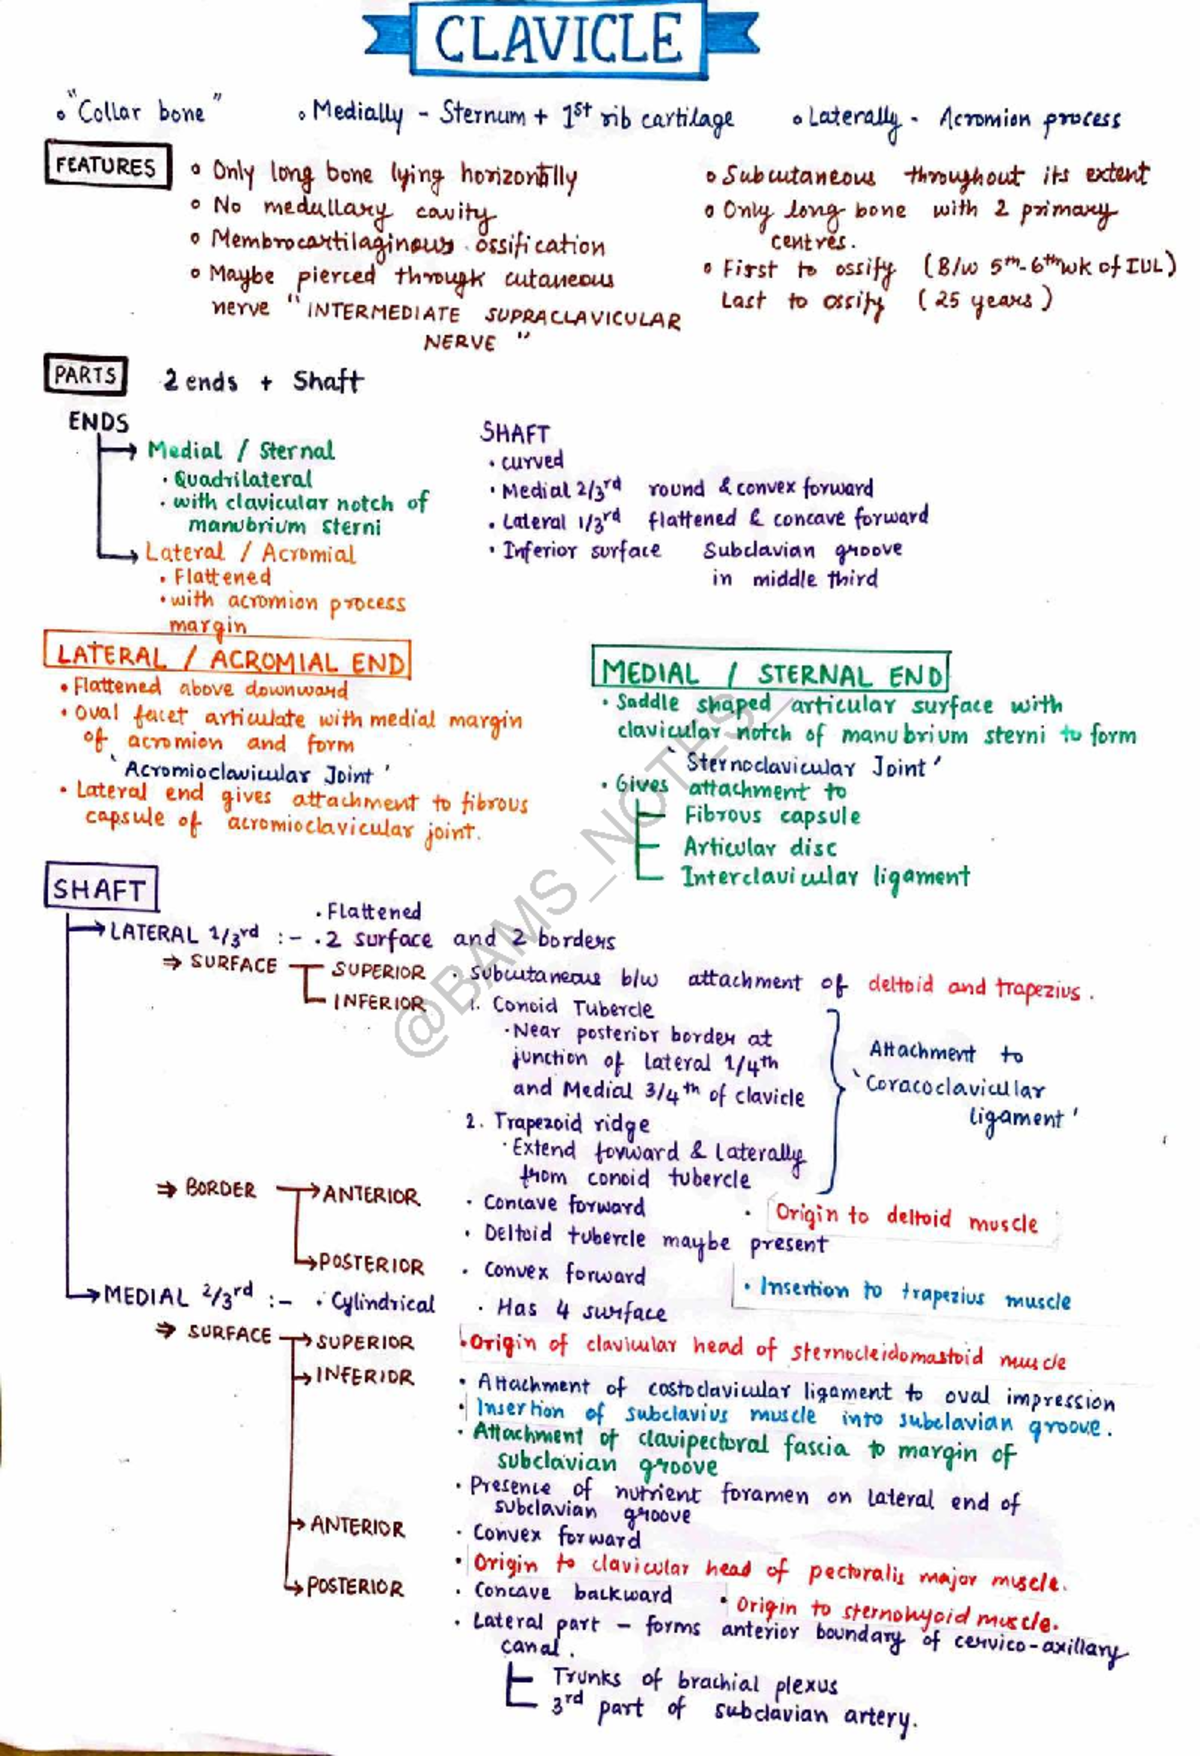 CLAVICLE
∘ "Collar bone" ∘ Medially - Sternum + 1st rib cartilage ∘ Laterally - Acromion process
FEATURES
∘ Only long bone lying horizontally
∘ No medullary cavity
∘ Membrocartilaginous ossification
∘ Maybe pierced through cutaneous
nerve "INTERMEDIATE SUPRACLAVICULAR
NERVE"
∘ Subcutaneous throughout its extent
∘ Only long bone with 2 primary
centres.
∘ First to ossify (B/w 5th-6th wk of IUL)
Last to ossify (25 years)
PARTS 2 ends + Shaft
ENDS
→ Medial / Sternal
· Quadrilateral
· with clavicular notch of
manubrium sterni
→ Lateral / Acromial
· Flattened
· with acromion process
margin
SHAFT
· curved
· Medial 2/3rd round & convex forward
· Lateral 1/3rd flattened & concave forward
· Inferior surface Subclavian groove
in middle third
LATERAL / ACROMIAL END
· Flattened above downward
· Oval facet articulate with medial margin
of acromion and form
'Acromioclavicular Joint'
· Lateral end gives attachment to fibrous
capsule of acromioclavicular joint.
MEDIAL / STERNAL END
· Saddle shaped articular surface with
clavicular notch of manubrium sterni to form
'Sternoclavicular Joint'
· Gives attachment to
Fibrous capsule
Articular disc
Interclavicular ligament
@BAMS_NOTES_
SHAFT
· Flattened
→ LATERAL 1/3rd :- · 2 surface and 2 borders
⇒ SURFACE SUPERIOR · Subcutaneous b/w attachment of deltoid and trapezius.
INFERIOR 1. Conoid Tubercle
· Near posterior border at
junction of lateral 1/4th
and Medial 3/4th of clavicle
2. Trapezoid ridge
· Extend forward & Laterally
from conoid tubercle
Attachment to
'Coracoclavicular
ligament'
⇒ BORDER → ANTERIOR · Concave forward · Origin to deltoid muscle
· Deltoid tubercle maybe present
→ POSTERIOR · Convex forward · Insertion to trapezius muscle
→ MEDIAL 2/3rd :- · Cylindrical · Has 4 surface
⇒ SURFACE → SUPERIOR · Origin of clavicular head of sternocleidomastoid muscle
→ INFERIOR · Attachment of costoclavicular ligament to oval impression
· Insertion of subclavius muscle into subclavian groove.
· Attachment of clavipectoral fascia to margin of
subclavian groove
· Presence of nutrient foramen on lateral end of
subclavian groove
→ ANTERIOR · Convex forward
· Origin to clavicular head of pectoralis major muscle.
→ POSTERIOR · Concave backward · Origin to sternohyoid muscle.
· Lateral part - forms anterior boundary of cervico-axillary
canal.
Trunks of brachial plexus
3rd part of subclavian artery.